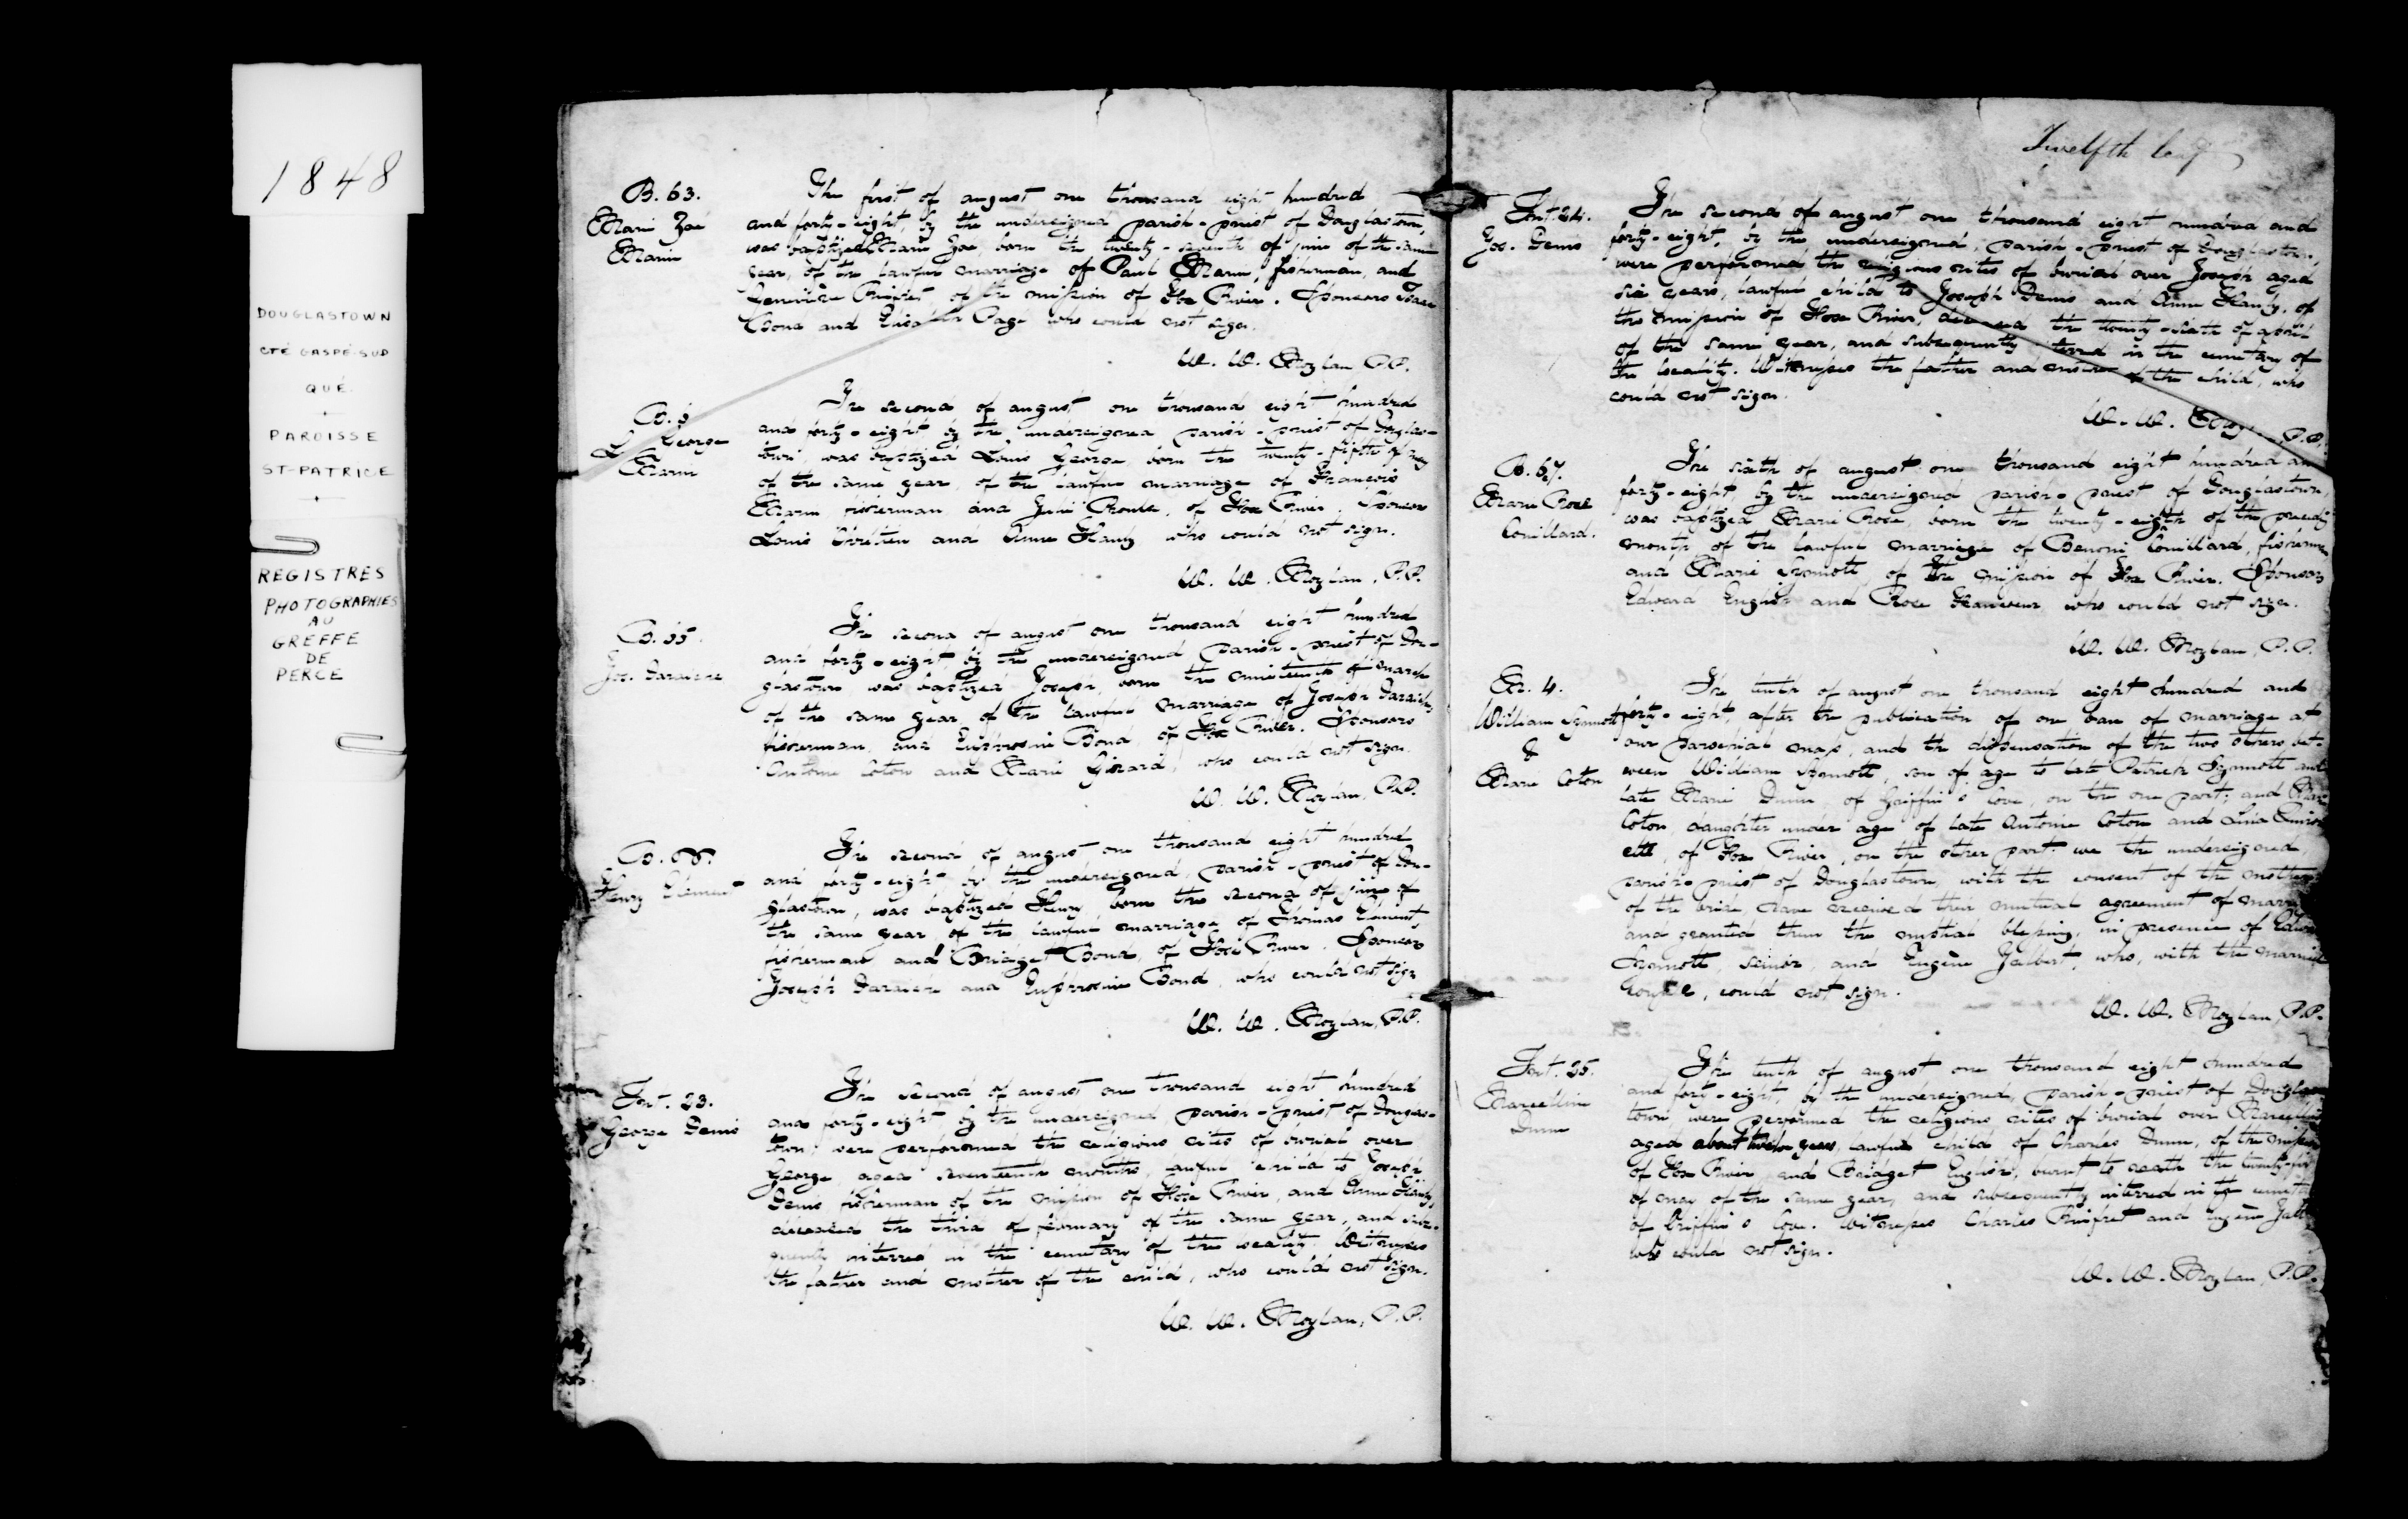 1848
DOUGLASTOWN
CTÉ GASPÉ-SUD
QUÉ.
PAROISSE
ST-PATRICE
REGISTRES
PHOTOGRAPHIES
AU
GREFFE
DE
PERCE
B. 63.
Marie Zoé
Marin
The first of august one thousand eight hundred
and forty-eight, by the undersigned parish-priest of Douglastown,
was baptized Marie Zoé, born the twenty-seventh of june of the same
year, of the lawful marriage of Paul Marin, fisherman, and
Rinfret, of the mission of Fox River. Sponsors Isaac
Bond and Page who could not sign.
W. W. Moylan P.P.
B. 6
L George
Marin
The second of august one thousand eight hundred
and forty-eight by the undersigned parish-priest of Douglas-
town, was baptized Louis George, born the twenty-fifth of may
of the same year, of the lawful marriage of François
Marin, fisherman and Julie, of Fox River. Sponsors
Louis Chrétien and Anne who could not sign.
W. W. Moylan, P.P.
B. 65.
Jos.
The second of august one thousand eight hundred
and forty-eight, by the undersigned parish-priest of Dou-
glastown was baptized Joseph, born the nineteenth of march
of the same year, of the lawful marriage of Joseph
fisherman, and Euphrosine Bond, of Fox River. Sponsors
Antoine Coton and Marie Girard, who could not sign.
W. W. Moylan, P.P.
B. 66.
Henry Element
The second of august one thousand eight hundred
and forty-eight, by the undersigned, parish-priest of Dou-
glastown, was baptized Henry, born the second of june of
the same year of the lawful marriage of Thomas Element
fisherman and Bridget Bond, of Fox River. Sponsors
Joseph and Euphrosine Bond, who could not sign
W. W. Moylan, P.P.
Int. 23.
George Denis
The second of august one thousand eight hundred
and forty-eight, by the undersigned, parish-priest of Douglas-
town, were performed the religious rites of burial over
George, aged seventeenth months, lawful child to Joseph
Denis, fisherman of the mission of Fox River, and Anne
deceased the third of february of the same year, and subse-
quently interred in the cemetary of the locality. Witnesses
the father and mother of the child, who could not sign.
W. W. Moylan, P.P.
Twelfth leaf
Int. 24.
Jos. Denis
The second of august one thousand eight hundred and
forty-eight, by the undersigned, parish-priest of Douglastown,
were performed the religious rites of burial over Joseph aged
six years, lawful child to Joseph Denis and Anne, of
the mission of Fox River, deceased the twenty-sixth of april
of the same year, and subsequently interred in the cemetary of
the locality. Witnesses the father and mother of the child, who
could not sign.
W. W. Moy P.P.
B. 67.
Marie Rose
Couillard.
The sixth of august one thousand eight hundred and
forty-eight, by the undersigned parish-priest of Douglastown,
was baptized Marie Rose, born the twenty-eighth of the preceding
month, of the lawful marriage of Benoni Couillard, fisherman
and Marie Synnott of the mission of Fox River. Sponsors
Edward English and Rose who could not sign.
W. W. Moylan, P.P.
M. 4.
William Synnott
&
Marie Coton
The tenth of august one thousand eight hundred and
forty-eight, after the publication of one ban of marriage at
our parochial mass, and the dispensation of the two others bet-
ween William Synnott, son of age to late Patrick Synnott and
late Marie Dunn, of Griffin's Cove, on the one part; and Marie
Coton, daughter under age of late Antoine Coton and
ette, of Fox River, on the other part: we the undersigned,
parish-priest of Douglastown, with the consent of the mother
of the bride, have received their mutual agreement of marriage
and granted them the nuptial blessing, in presence of Edward
Synnott, senior, and Eugène Jalbert, who, with the married
couple, could not sign.
W. W. Moylan, P.P.
Int. 25.
Marcelline
Dunn
The tenth of august one thousand eight hundred
and forty-eight, by the undersigned, parish-priest of Douglas-
town, were performed the religious rites of burial over Marcelline
aged about twelve years, lawful child of Charles Dunn, of the mission
of Fox River and Bridget English, burnt to death the twenty-
of may of the same year, and subsequently interred in the cemetary
of Griffin's Cove. Witnesses Charles Rinfret and Eugène Jalbert
who could not sign.
W. W. Moylan, P.P.